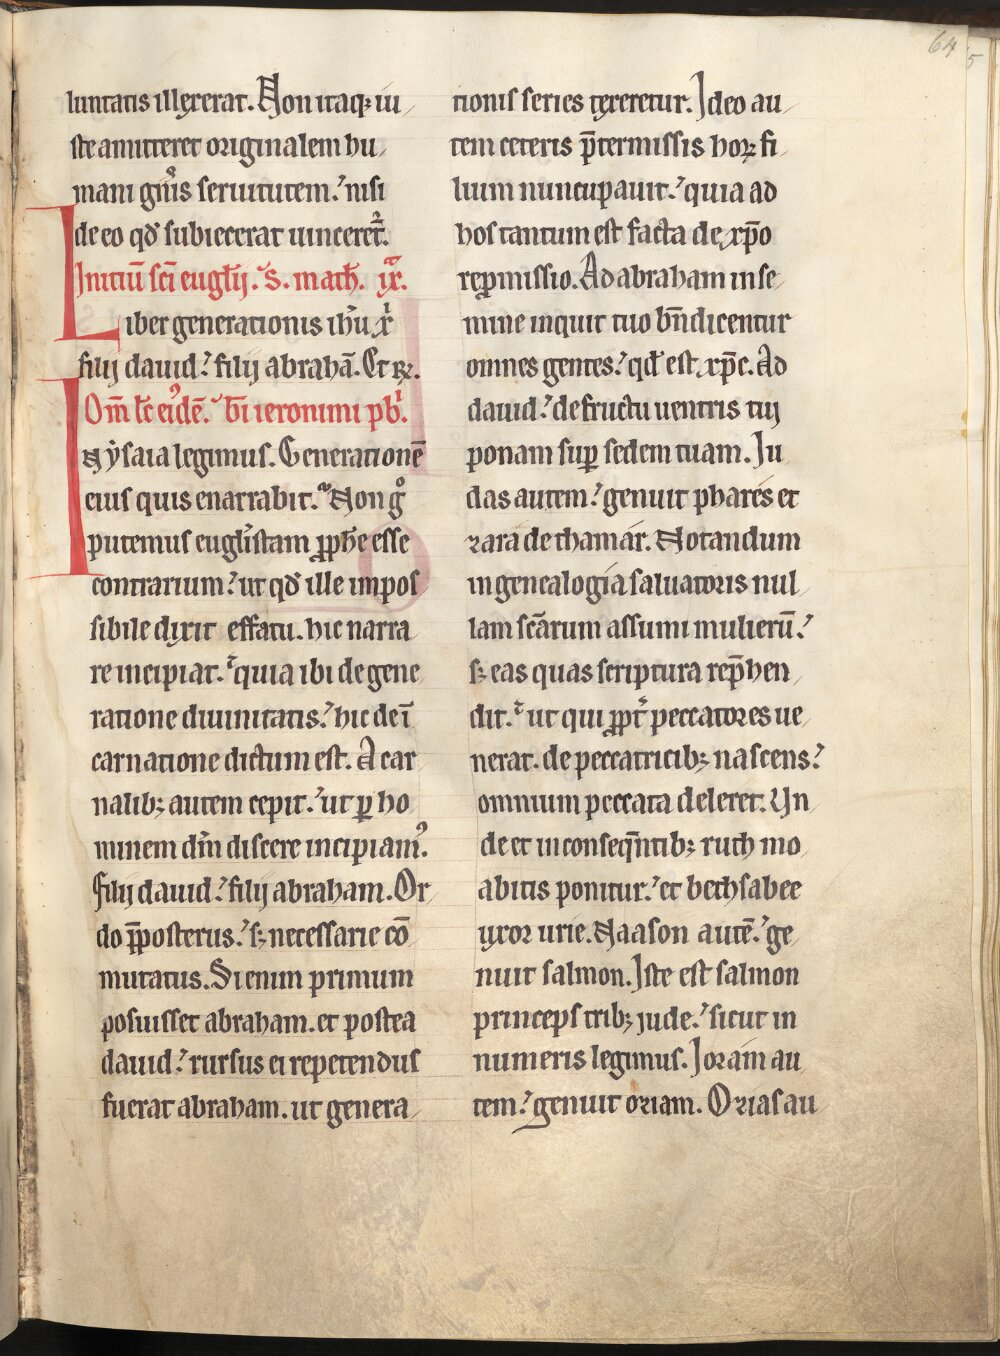 64
5
luntatis illexerat. Non itaq; iu
ste amitteret originalem hu
mani gn̄is seruitutem. nisi
de eo qđ subiecerat uinceret̉.
Initiū sc̄i eugl̄ij. s. math̄. ix.
Liber generationis ih̄u xp̄i
filij dauid. filij abrahā. Et rꝫ.
Om̄ lc̄ eiꝰdē. b̄i ieronimi pb̄i.
In ysaia legimus. Generationē
eius quis enarrabit. Non gͦ
putemus eugl̄istam ꝓph̄e esse
contrarium. ut qđ ille impos
sibile dixit effatu. hic narra
re incipiat. quia ibi de gene
ratione diuinitatis. hic de ī
carnatione dictum est. A car
nalib; autem cepit. ut ꝑ ho
minem dn̄m discere incipiamꝰ.
Filij dauid. filij abraham. Or
do p̄posterus. s; necessarie cō
mutatus. Si enim primum
posuisset abraham. et postea
dauid. rursus ei repetendus
fuerat abraham. ut genera
tionis series texeretur. Ideo au
tem ceteris p̄termissis hoꝝ fi
lium nuncupauit. quia ad
hos tantum est facta de xp̄o
repmissio. Ad abraham in se
mine inquit tuo bn̄dicentur
omnes gentes. qđ est xp̄c. Ad
dauid. de fructu uentris tui
ponam suꝑ sedem tuam. Iu
das autem. genuit phares et
zara de thamar. Notandum
in genealogia saluatoris nul
lam sc̄arum assumi mulierū.
s; eas quas scriptura rep̄hen
dit. ut qui ꝓpt̄ peccatores ue
nerat. de peccatricib; nascens.
omnium peccata deleret. Un
de et in conseq̄ntib; ruth mo
abitis ponitur. et bethsabee
uxor urie. Naason autē. ge
nuit salmon. Iste est salmon
princeps trib; iude. sicut in
numeris legimus. Ioram au
tem. genuit oziam. Ozias au